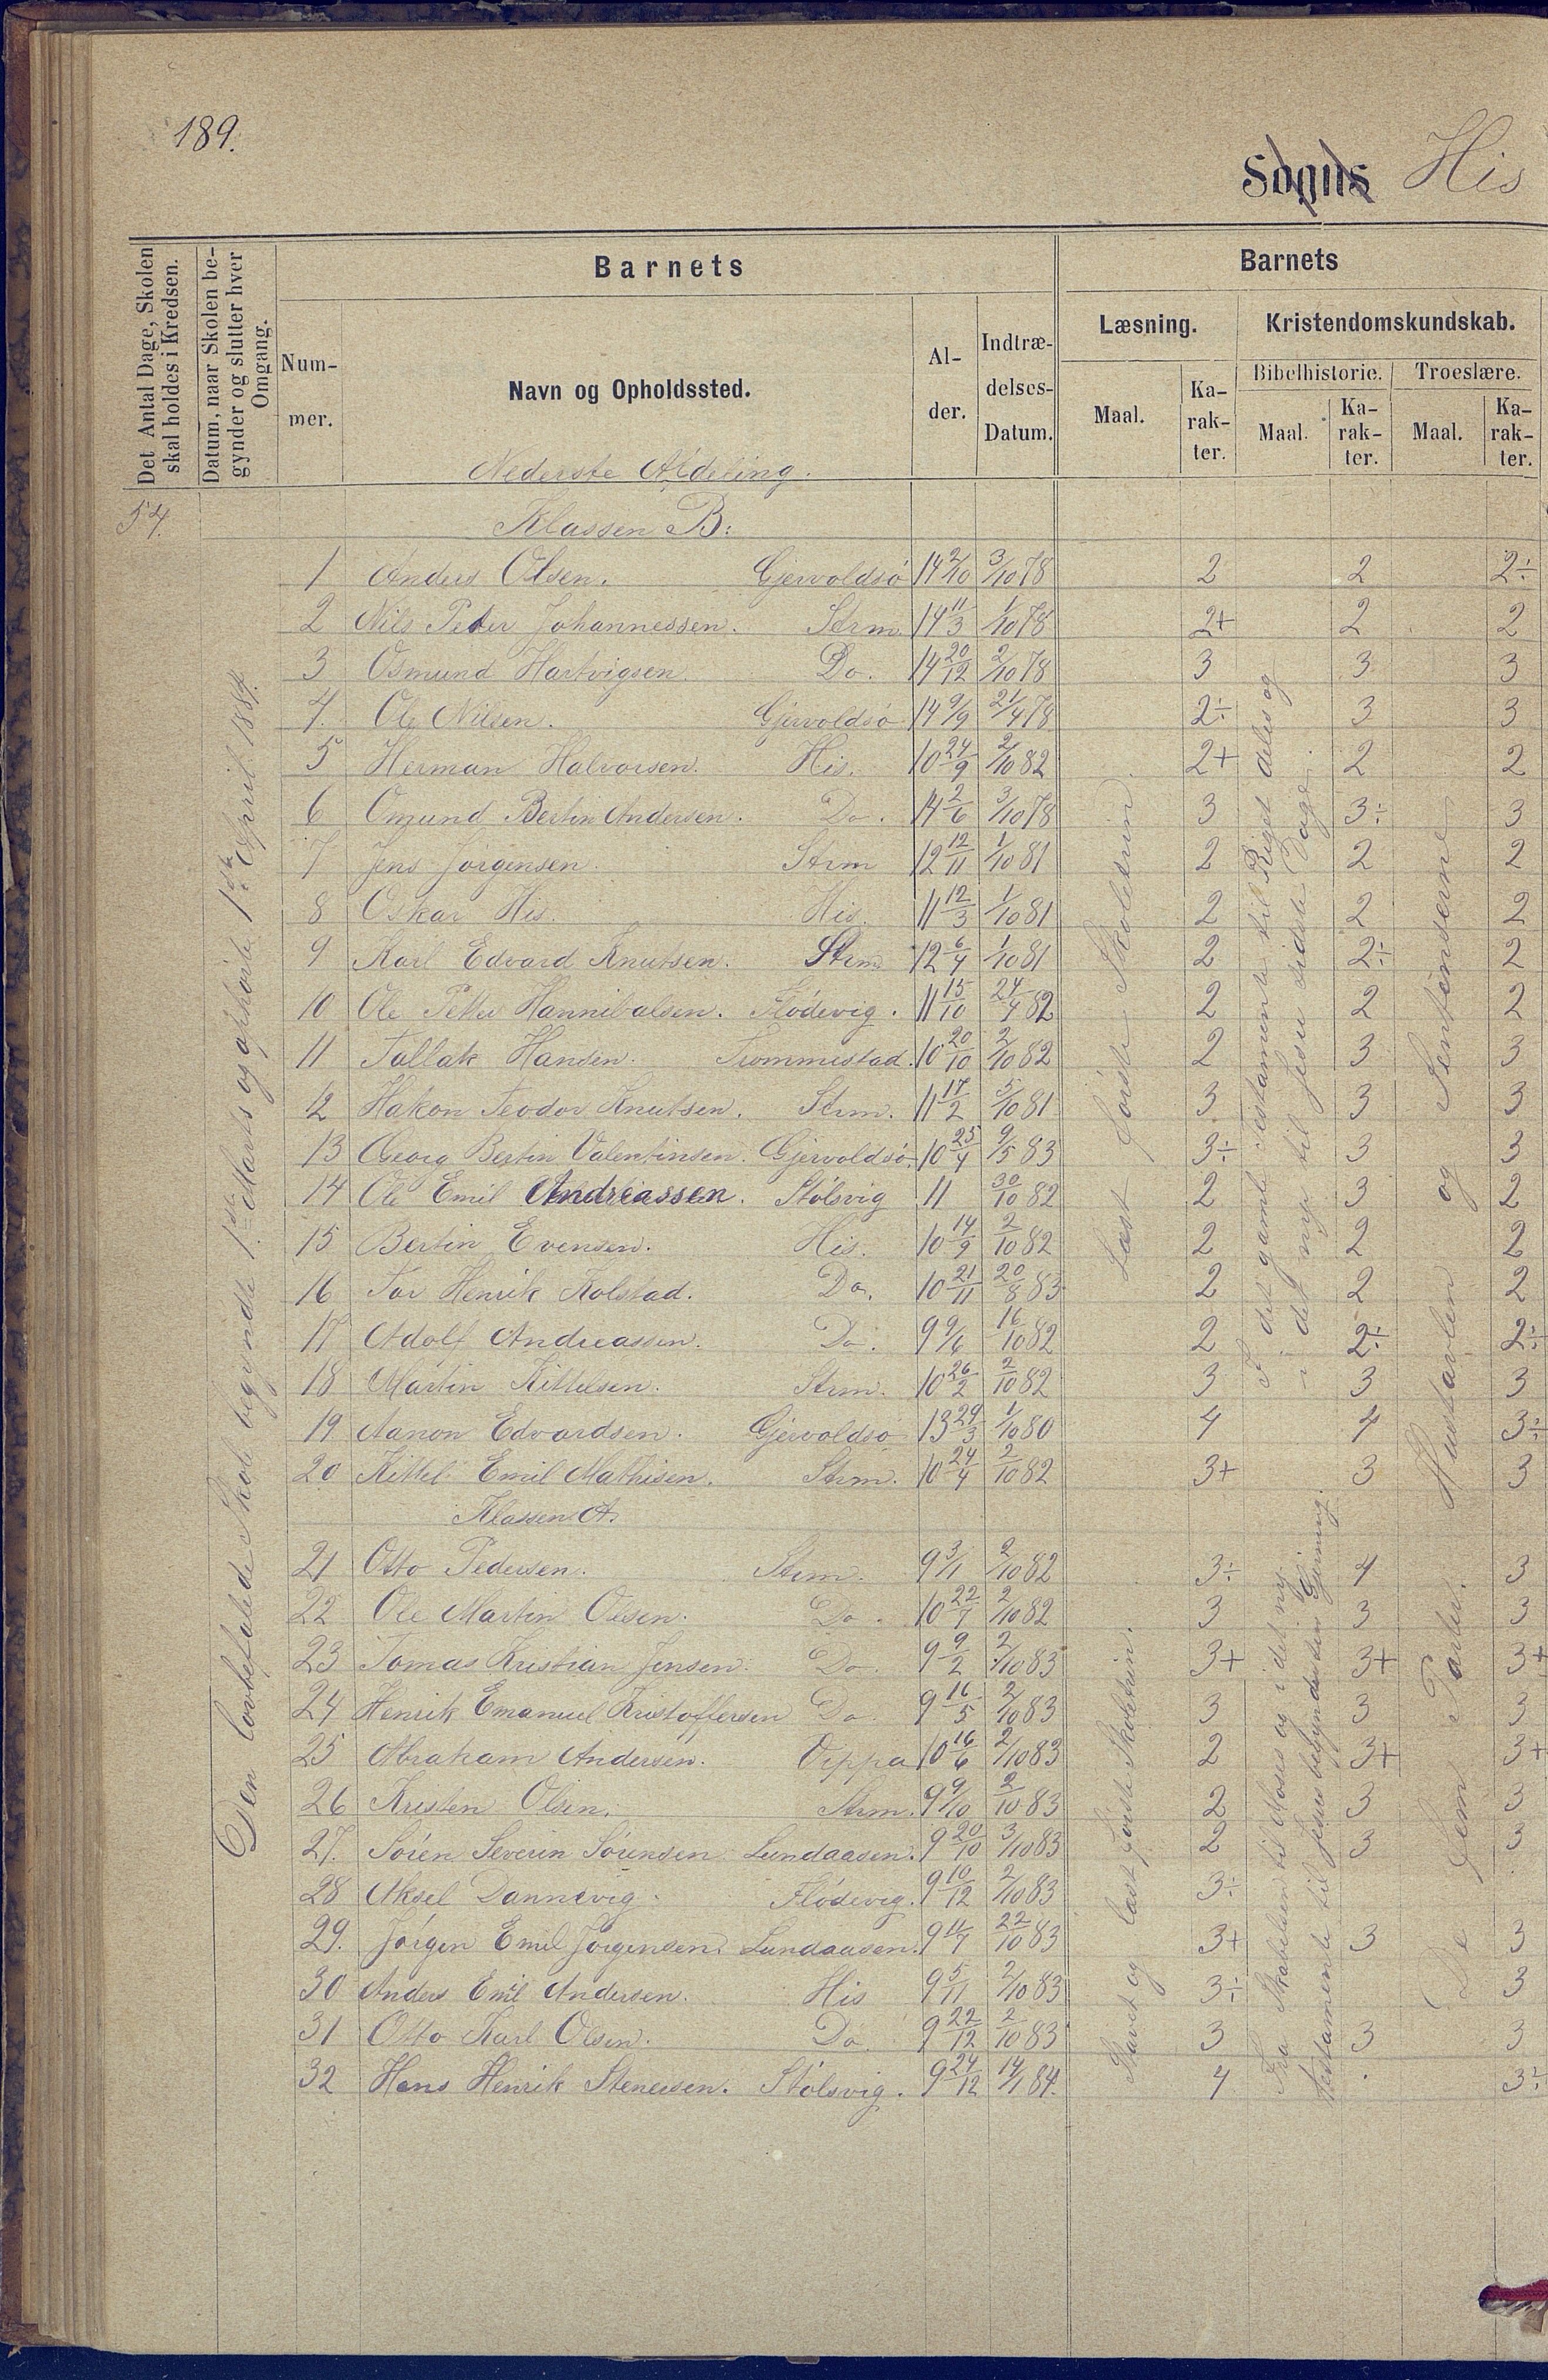 189.
Sogns His
Det Antal Dage, Skolen skal holdes i Kredsen.
Datum, naar Skolen begynder og slutter hver Omgang.
Barnets
Barnets
Læsning. Kristendomskundskab.
Bibelhistorie. Troeslære.
Num-mer. Navn og Opholdssted. Al-der. Indtræ-delses-Datum. Maal. Ka-rak-ter. Maal. Ka-rak-ter. Maal. Ka-rak-ter.
Nederste Afdeling.
54. Klassen B:
1 Anders Olsen. Gjervoldsø 14 2/10 3/10 78 2 2 2÷
2 Nils Peter Johannessen. Strm. 14 11/3 1/10 78 2+ 2 2
3 Osmund Hartvigsen Do. 14 20/12 2/10 78 3 3 3
4. Ole Nilsen. Gjervoldsø 14 9/9 21/4 78 2÷ 3 3
5 Herman Halvorsen. His. 10 24/9 2/10 82 2+ 2 2
6 Omund Bertin Andersen. Do. 14 2/6 3/10 78 3 3÷ 3
7 Jens Jørgensen. Strm 12 12/11 1/10 81 2 2 2
8 Oskar His. His. 11 12/3 1/10 81 2 2 2
9 Karl Edvard Knutsen. Strm 12 6/4 1/10 81 2 2÷ 2
10 Ole Petter Hannibalsen. Flödevig. 11 15/10 24/4 82 2 2 2
11 Tallak Hansen. Trommestad. 10 20/10 2/10 82 2 3 3
12 Hakon Teodor Knutsen. Strm. 11 17/2 5/10 81 3 3 3
13 Georg Bertin Valentinsen. Gjervoldsø. 10 25/4 9/5 83 3÷ 3 3
14 Ole Emil Andreassen. Stölsvig 11 30/10 82 2 3 2
15 Bertin Evensen. His. 10 14/9 2/10 82 2 2 2
16 Tor Henrik Kolstad. Do. 10 21/11 20/8 83 2 2 2
17 Adolf Andreassen. Do. 9 9/6 16/10 82 2 2÷ 2÷
18 Martin Kittelsen. Strm. 10 26/2 2/10 82 3 3 3
19 Aanon Edvardsen. Gjervoldsø 13 29/3 1/10 80 4 4 3÷
20 Kittel Emil Mathisen. Strm. 10 24/4 2/10 82 3+ 3 3
Klassen A.
21 Otto Pedersen. Strm. 9 3/1 2/10 82 3÷ 4 3
22 Ole Martin Olsen. Do. 10 22/7 2/10 82 3 3 3
23 Tomas Kristian Jensen Do. 9 9/2 2/10 83 3+ 3+ 3+
24 Henrik Emanuel Kristoffersen Do. 9 16/5 2/10 83 3 3 3
25 Abraham Andersen. Vippa 10 16/6 2/10 83 2 3+ 3+
26 Kristen Olsen. Strm. 9 9/10 2/10 83 2 3 3
27. Sören Severin Sörensen Lundaasen. 9 20/10 3/10 83 2 3 3
28 Aksel Dannevig. Flödevig. 9 10/12 2/10 83 3÷
29. Jörgen Emil Jörgensen. Lundaasen. 9 11/7 22/10 83 3+ 3 3
30 Anders Emil Andersen. His 9 5/11 2/10 83 3÷ 3
31 Otto Karl Olsen. Do. 9 22/12 2/10 83 3 3 3
32 Hans Henrik Stenersen. Stölsvig. 9 24/12 14/1 84. 4 3÷
Den lovbefalede Skole begyndte 1ste Marts og ophörte 1ste April 1884.
Læst förste Skoletrin
Stavet og læst förste Skoletrin.
I det gamle Testamente til Riget deles og
i det nye til Jesu sidste Dage.
Fra Skabelsen til Moses og i det ny
Testamente til Jesus begynder sin Gjerning.
De fem Parter. Hustavlen og Sentenserne